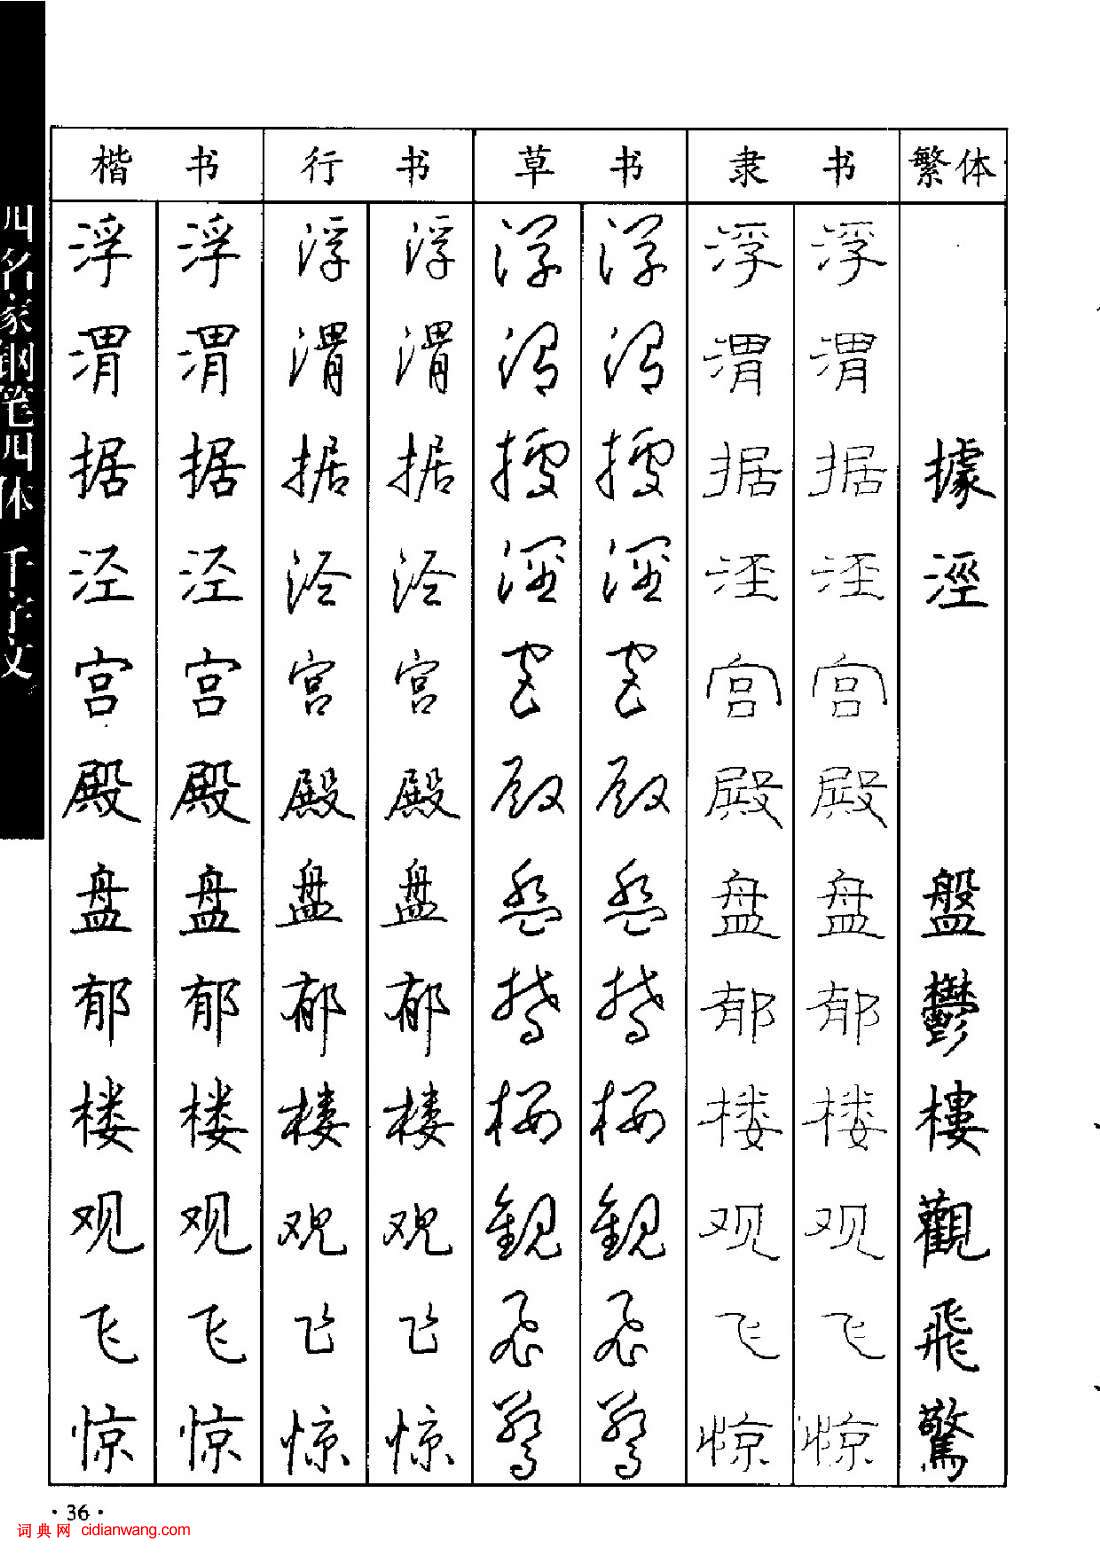 四名家钢笔四体 千字文
楷书 行书 草书 隶书 繁体
浮 浮 浮 浮 浮 浮 浮 浮
渭 渭 渭 渭 渭 渭 渭 渭
据 据 据 据 據 據 据 据 據
泾 泾 泾 泾 涇 涇 泾 泾 涇
宫 宫 宫 宫 宫 宫 宫 宫
殿 殿 殿 殿 殿 殿 殿 殿
盘 盘 盘 盘 盘 盘 盘 盘 盤
郁 郁 郁 郁 鬱 鬱 郁 郁 鬱
楼 楼 楼 楼 楼 楼 楼 楼 樓
观 观 观 观 觀 觀 观 观 觀
飞 飞 飞 飞 飛 飛 飞 飞 飛
惊 惊 惊 惊 驚 驚 惊 惊 驚
·36·
词典网 cidianwang.com